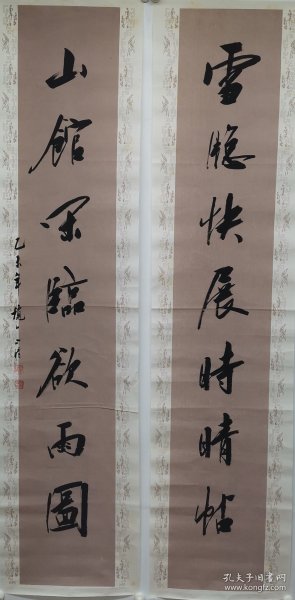 雪牕快展時晴帖
山館閒臨欲雨圖
乙未年
孔夫子旧书网
www.kongfz.com